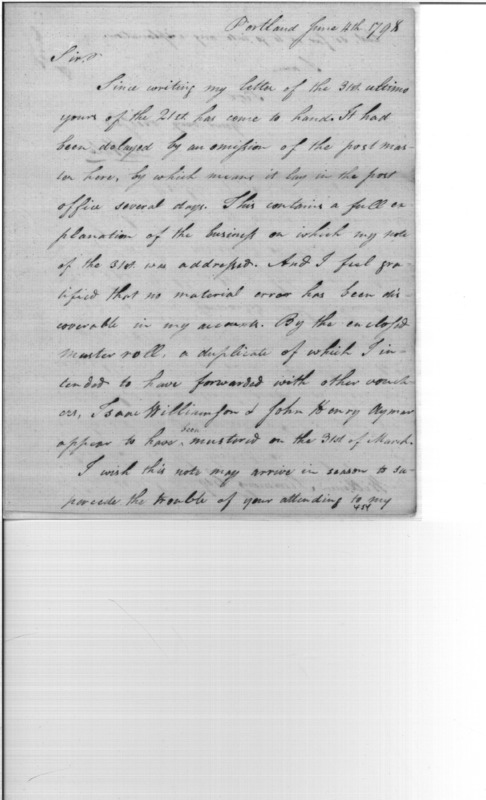 Portland June 4th. 1798
Sir,
Since writing my letter of the 31st. ultimo
yours of the 21st. has come to hand. It had
been delayed by an omission of the post mas-
ter here, by which means it lay in the post
office several days. This contains a full ex
planation of the business on which my note
of the 31st. was addressed. And I feel gra-
tified that no material error has been dis-
coverable in my accounts. By the enclosed
muster roll, a duplicate of which I in-
tended to have forwarded with other vouch-
ers, Isaac Williamson & John Henry Aymar
appear to have been mustered on the 31st of March.
I wish this note may arrive in season to su-
percede the trouble of your attending to my
454